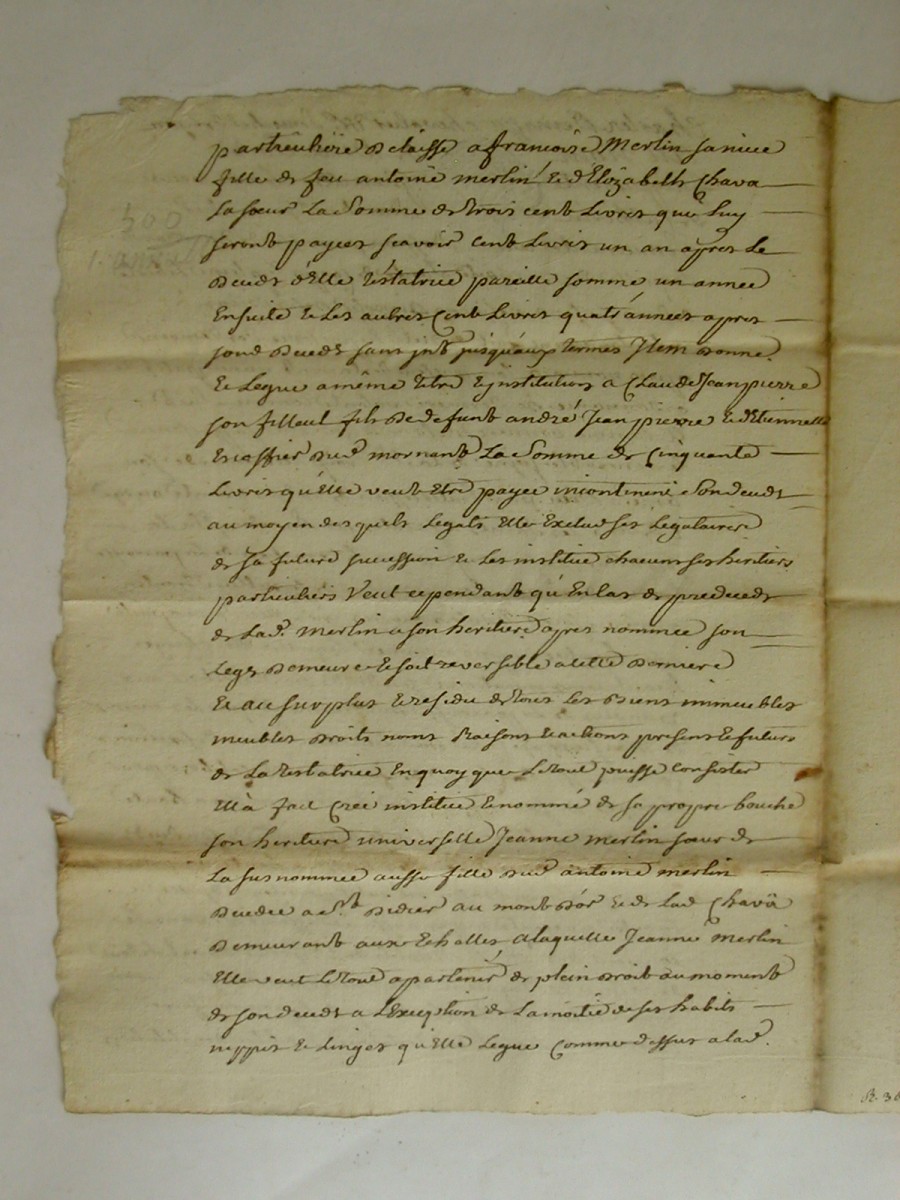 particuliere delaisse a francoise Merlin sa niece
fille de feu antoine merlin & d'Elizabeth Chava
sa sœur La Somme de trois cent Livres que Luy
seront payees scavoir cent Livres un an apres Le
deceds d'elle testatrice pareille somme un annee
Ensuite & Les autres Cent Livres quatr'années apres
sond deceds sans jnt jusqu'aux termes Jtem donne
& Legue a même titre d'institution a Claude Jean pierre
son filleul fils de defunt andré Jean pierre & d'Etiennette
du d mornant La Somme de Cinquante
Livres qu'elle veut Etre payee incontinent son deceds
au moyen desquels Legats Elle Exclud ses Legataires
de sa future succession & Les institue chacun ses heritiers
particuliers Veut cependant qu'En cas de predeceds
de Lad. Merlin a son heritiere apres nommée son
Legs demeure & soit reversible a cette derniere
Et au surplus & residu de tous Les Biens immeubles
meubles droits noms Raisons & actions presents & futurs
de La testatrice En quoy que Letout puisse Consister
Elle à fait Créé institué & nommé de sa propre bouche
son heritiere universelle Jeanne merlin sœur de
La susnommée aussy fille dud antoine merlin
decedé a St. Didier au mont d'or & de Lad Chavâ
demeurant aux Echelles a laquelle Jeanne Merlin
Elle veut Letout apartenir de plein droit au moment
de son deceds a L'Exception de La moitié de ses habits
nippes & Linges qu'elle Legue Comme dessus a lad.